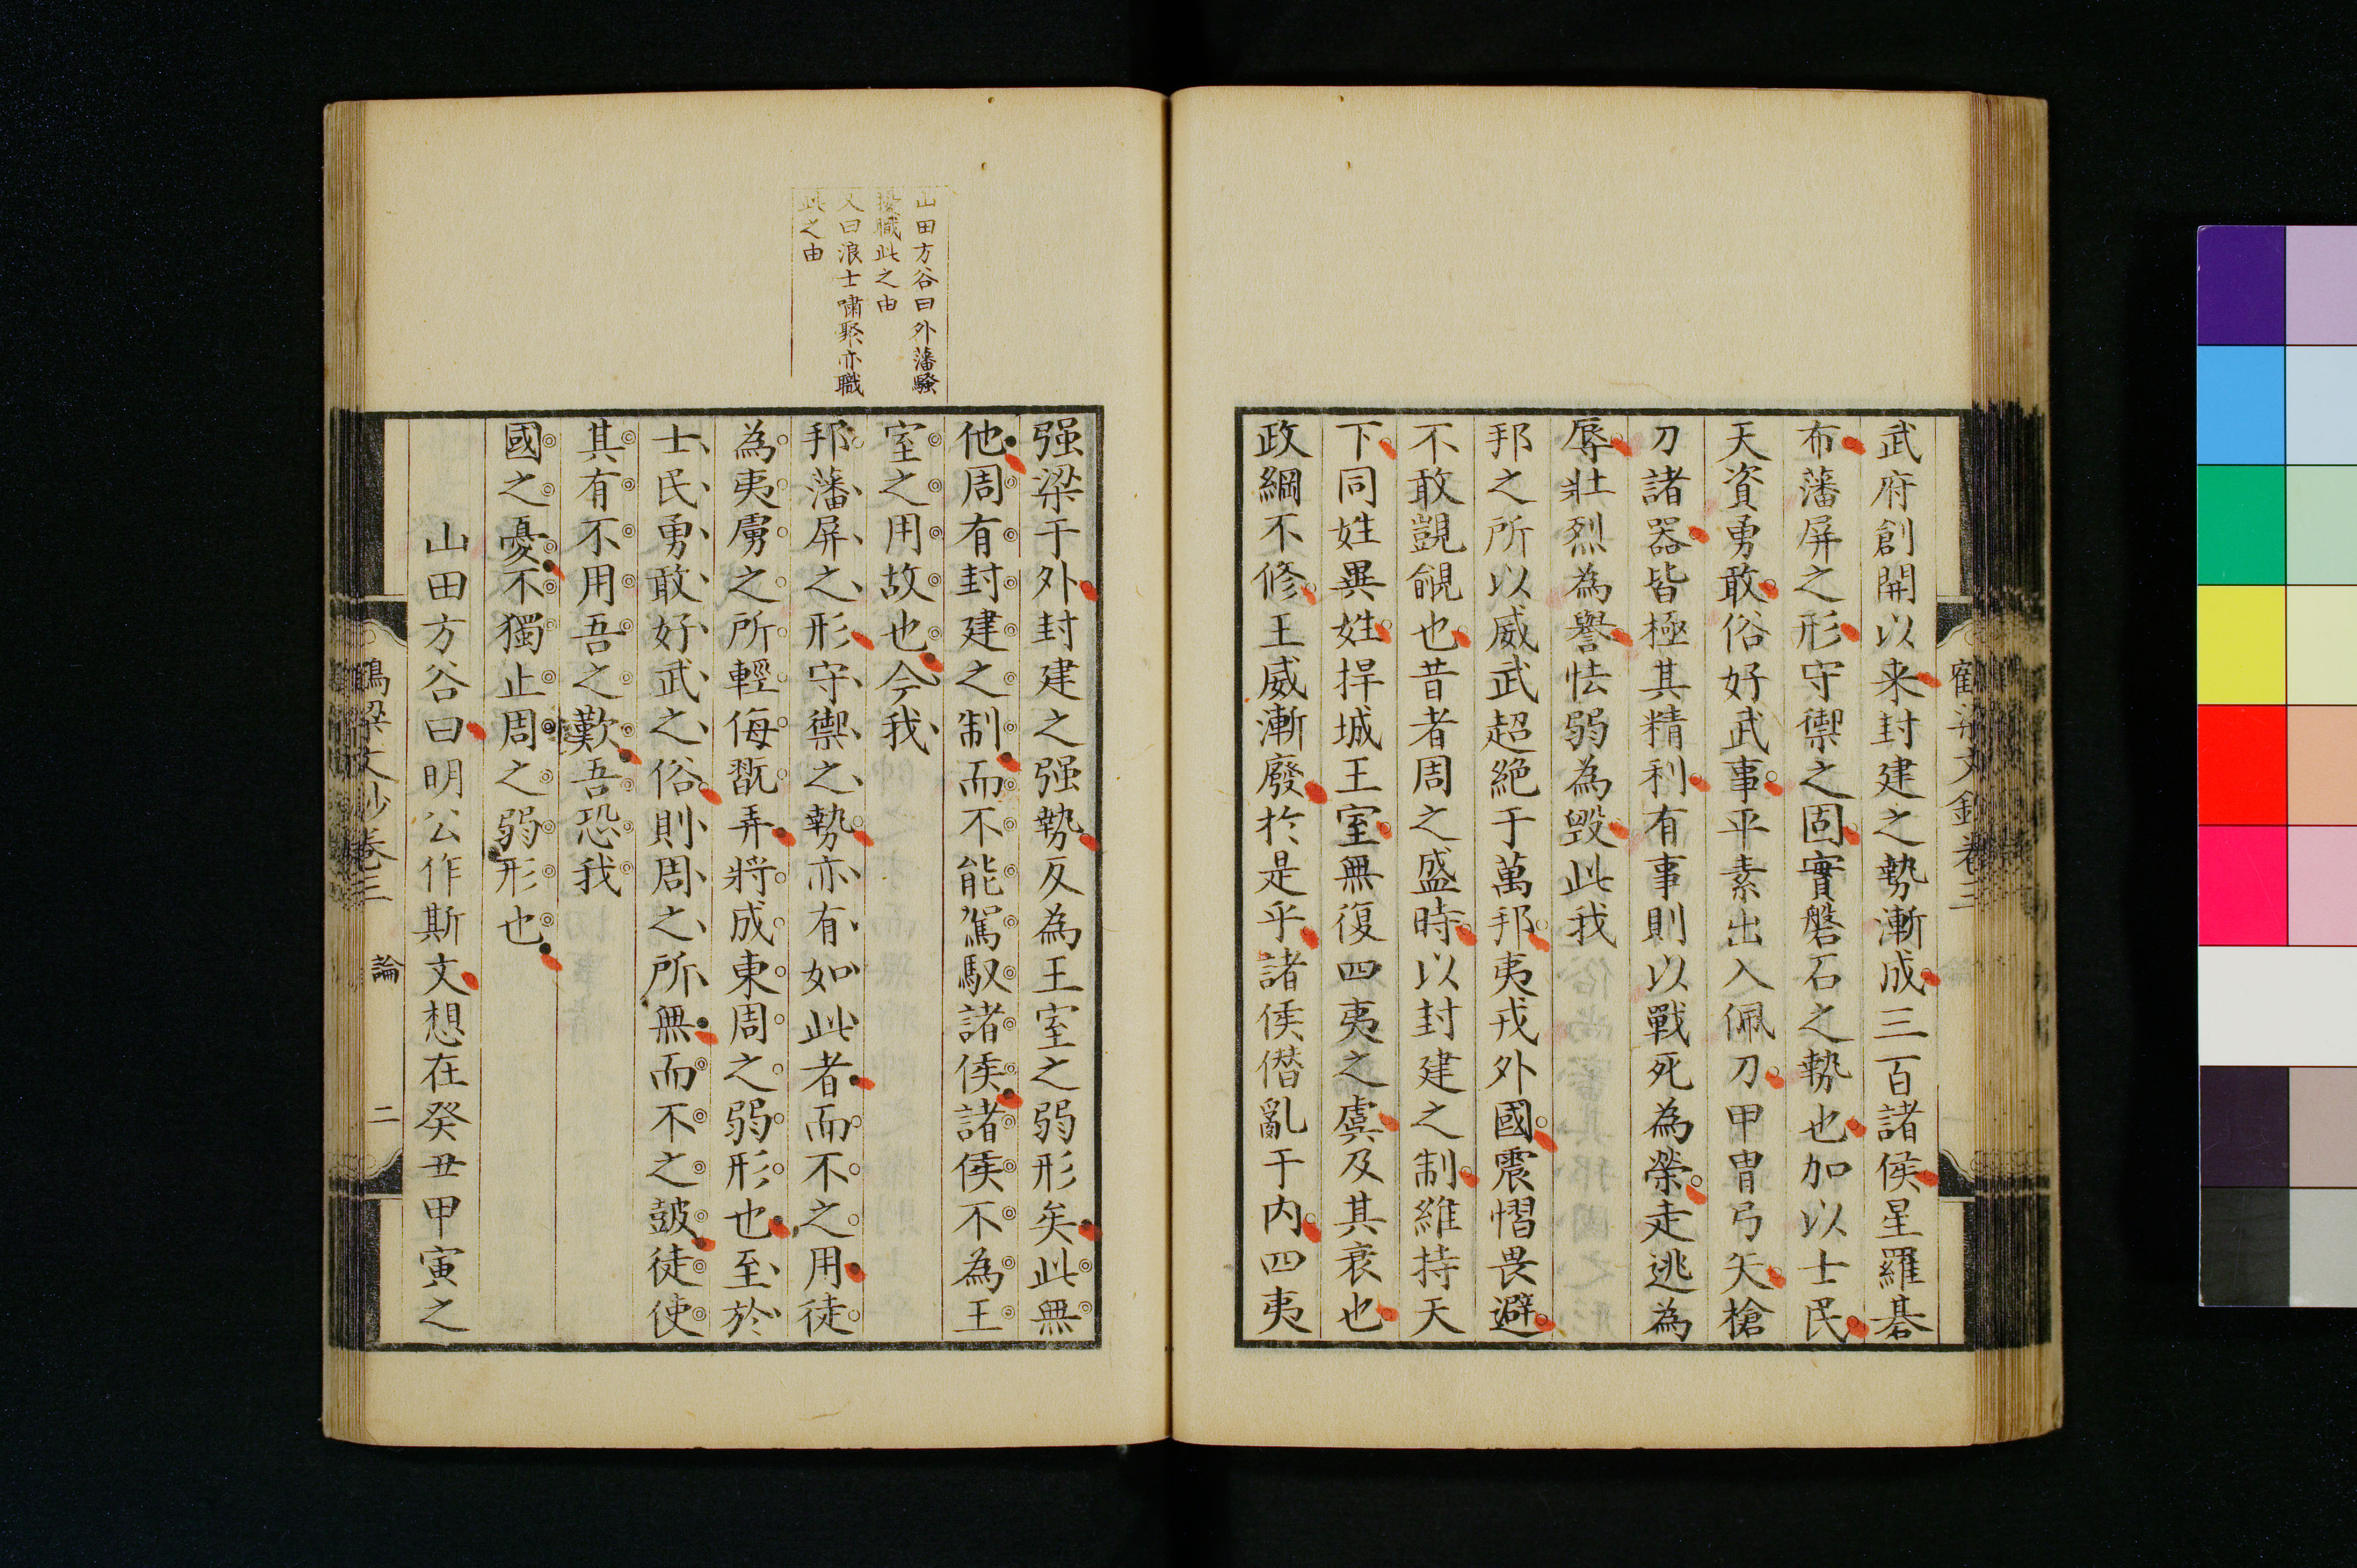 武府創開以来封建之勢漸成三百諸侯星羅碁
布藩屏之形守禦之固實磐石之勢也加以士民
天資勇敢俗好武事平素出入佩刀甲冑弓矢槍
刀諸器皆極其精利有事則以戰死為榮走逃為
辱壯烈為譽怯弱為毀此我
邦之所以威武超絶于萬邦夷戎外國震慴畏避
不敢覬覦也昔者周之盛時以封建之制維持天
下同姓異姓捍城王室無復四夷之虞及其衰也
政綱不修王威漸廢於是乎諸侯僭亂于内四夷
鶴梁文鈔卷三
强梁于外封建之强勢反為王室之弱形矣此無
他周有封建之制而不能駕馭諸侯諸侯不為王
室之用故也今我
邦藩屏之形守禦之勢亦有如此者而不之用徒
為夷虜之所輕侮翫弄將成東周之弱形也至於
士民勇敢好武之俗則周之所無而不之鼓徒使
其有不用吾之歎吾恐我
國之憂不獨止周之弱形也
山田方谷曰明公作斯文想在癸丑甲寅之
山田方谷曰外藩騷
擾職此之由
又曰浪士嘯聚亦職
此之由
鶴梁文鈔卷三 論 二